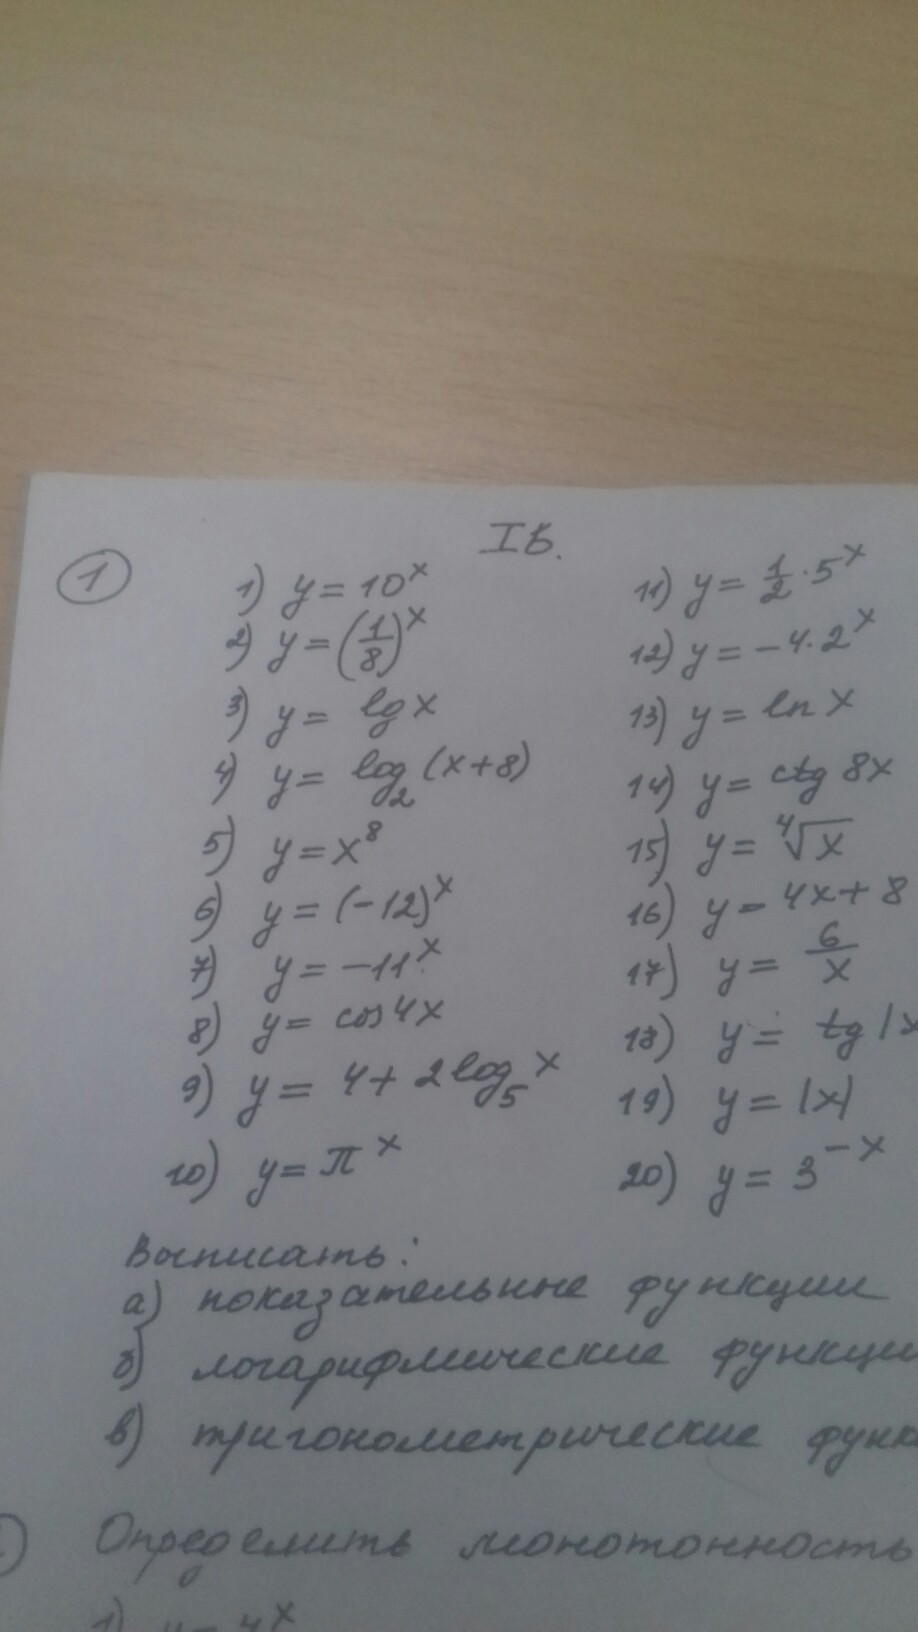 I в.
1
1) y = 10^x
2) y = (1/8)^x
3) y = lg x
4) y = log_2 (x+8)
5) y = x^8
6) y = (-12)^x
7) y = -11^x
8) y = cos 4x
9) y = 4 + 2 log_5 x
10) y = π^x
11) y = 1/2 · 5^x
12) y = -4 · 2^x
13) y = ln x
14) y = ctg 8x
15) y = ∜x
16) y = 4x + 8
17) y = 6/x
18) y = tg |x
19) y = |x|
20) y = 3^{-x}
Выписать:
а) показательные функции
б) логарифмические функции
в) тригонометрические функ
Определить монотонность
1) y = 4^x